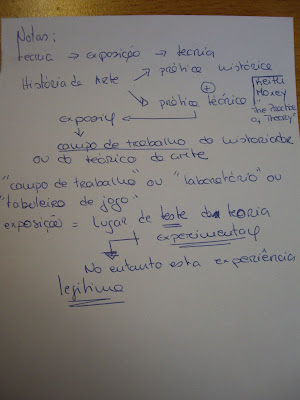 Notas:
teoria → exposição → teoria
História da Arte → prática histórica
+
→ prática teórica
Keith
Moxey
"The Practice
of Theory"
exposição ←
campo de trabalho do historiador
ou do teórico da arte
"campo de trabalho" ou "laboratório" ou
"tabuleiro de jogo"
exposição = lugar de teste da teoria
experimental
No entanto esta experiência
legitima